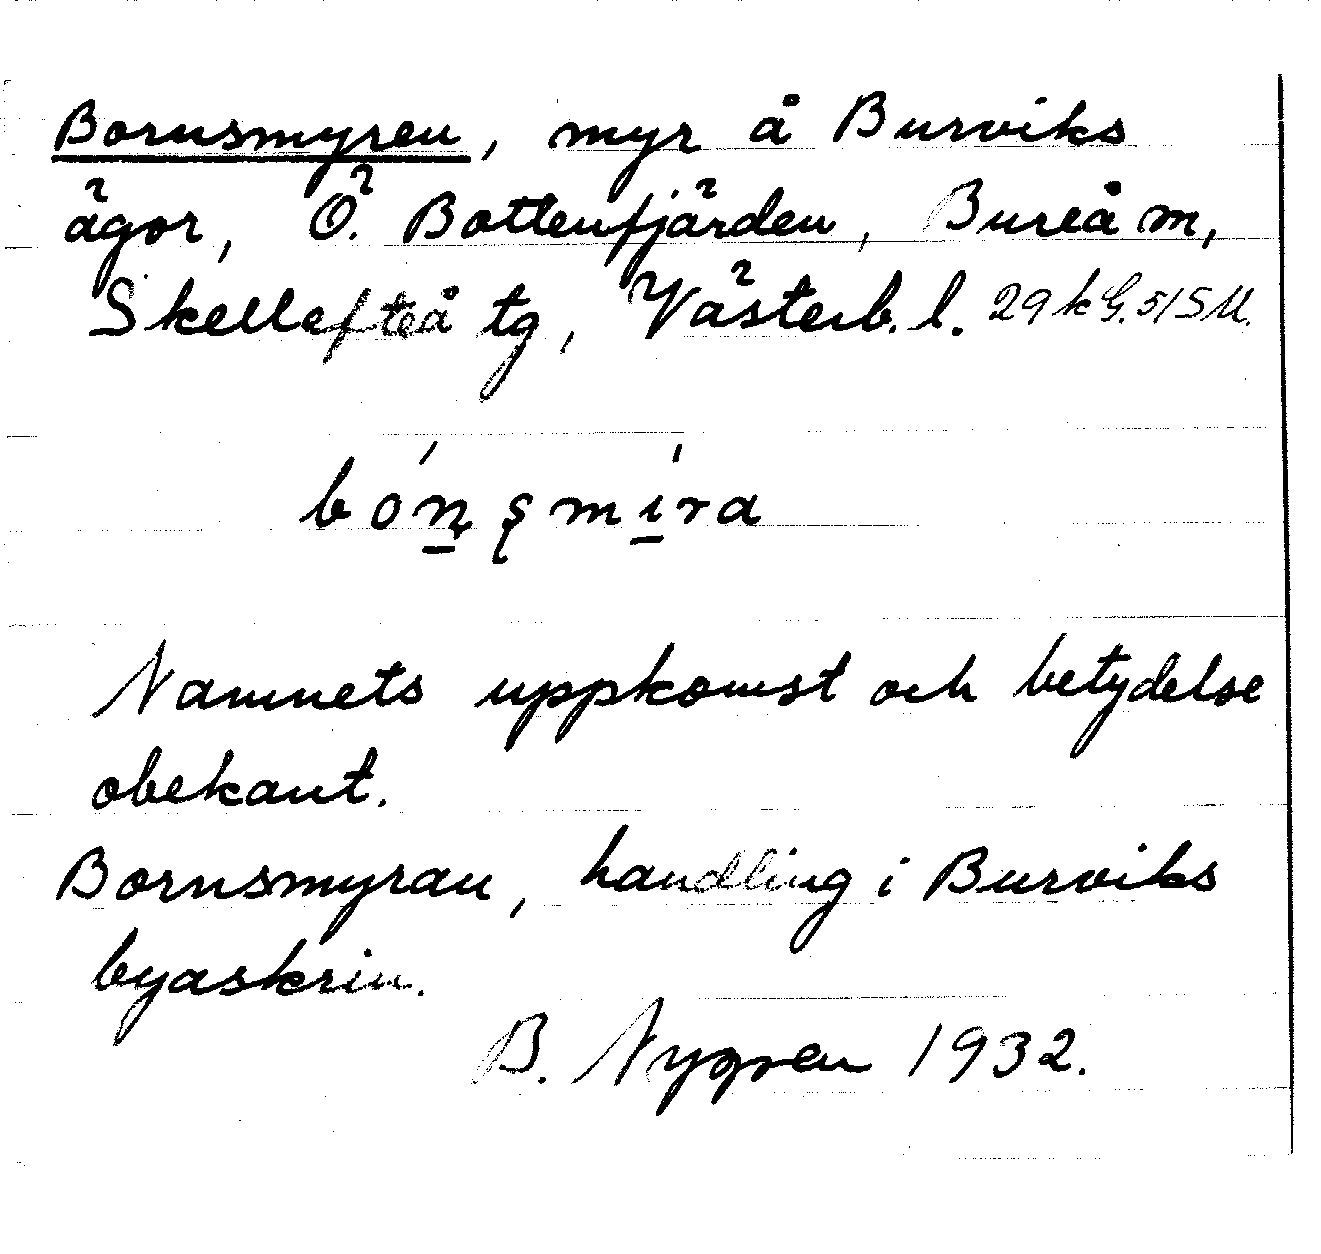 Bornsmyren, myr å Burviks
ägor, Ö. Bottenfjärden, Bureå m,
Skellefteå tg, Västerb. l. 29 k G. 5/5 U.
bón̠ʂmíra
Namnets uppkomst och betydelse
obekant.
Bornsmyran, handling i Burviks
byaskrin.
B. Nygren 1932.